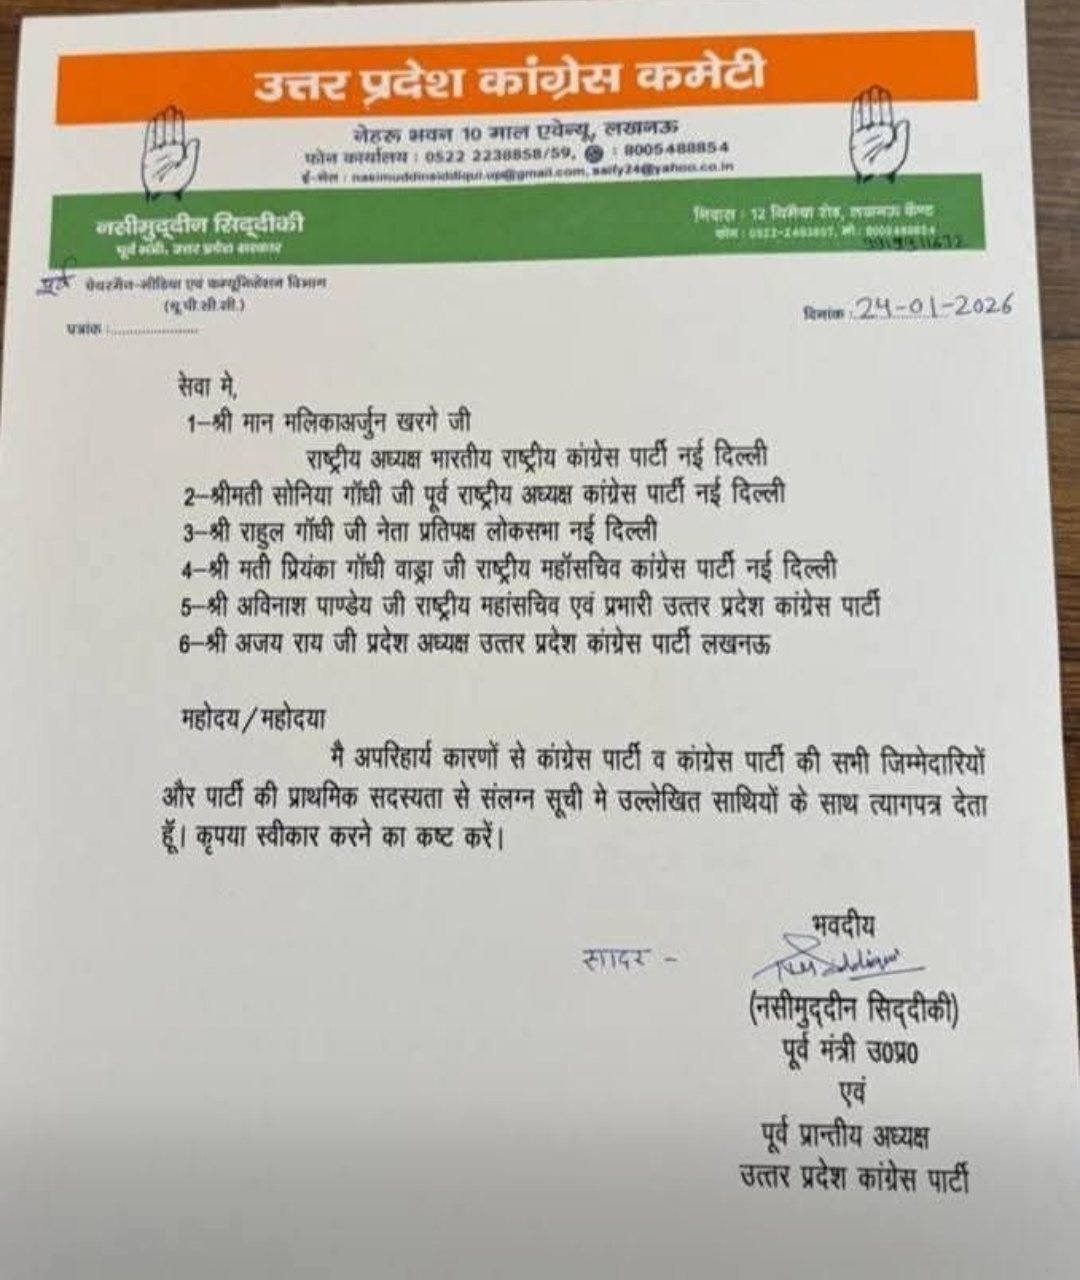 उत्तर प्रदेश कांग्रेस कमेटी
नेहरू भवन 10 माल एवेन्यू, लखनऊ
फोन कार्यालय : 0522 2238858/59, : 8005488854
ई-मेल : nasimuddinsiddiqui.up@gmail.com, saify24@yahoo.co.in
नसीमुद्दीन सिद्दीकी
पूर्व मंत्री, उत्तर प्रदेश सरकार
निवास : 12 रोड, लखनऊ कैण्ट
फोन : मो. : 8005488854
पूर्व चेयरमैन-मीडिया एवं कम्यूनिकेशन विभाग
(यू.पी.सी.सी.)
पत्रांक :......................
दिनांक : 24-01-2026
सेवा मे,
1–श्री मान मलिकाअर्जुन खरगे जी
राष्ट्रीय अध्यक्ष भारतीय राष्ट्रीय कांग्रेस पार्टी नई दिल्ली
2–श्रीमती सोनिया गॉधी जी पूर्व राष्ट्रीय अध्यक्ष कांग्रेस पार्टी नई दिल्ली
3–श्री राहुल गॉधी जी नेता प्रतिपक्ष लोकसभा नई दिल्ली
4–श्री मती प्रियंका गॉधी वाड्रा जी राष्ट्रीय महॉसचिव कांग्रेस पार्टी नई दिल्ली
5–श्री अविनाश पाण्डेय जी राष्ट्रीय महांसचिव एवं प्रभारी उत्तर प्रदेश कांग्रेस पार्टी
6–श्री अजय राय जी प्रदेश अध्यक्ष उत्तर प्रदेश कांग्रेस पार्टी लखनऊ
महोदय/महोदया
मै अपरिहार्य कारणों से कांग्रेस पार्टी व कांग्रेस पार्टी की सभी जिम्मेदारियों
और पार्टी की प्राथमिक सदस्यता से संलग्न सूची मे उल्लेखित साथियों के साथ त्यागपत्र देता
हूँ। कृपया स्वीकार करने का कष्ट करें।
भवदीय
सादर -
(नसीमुद्दीन सिद्दीकी)
पूर्व मंत्री उ0प्र0
एवं
पूर्व प्रान्तीय अध्यक्ष
उत्तर प्रदेश कांग्रेस पार्टी